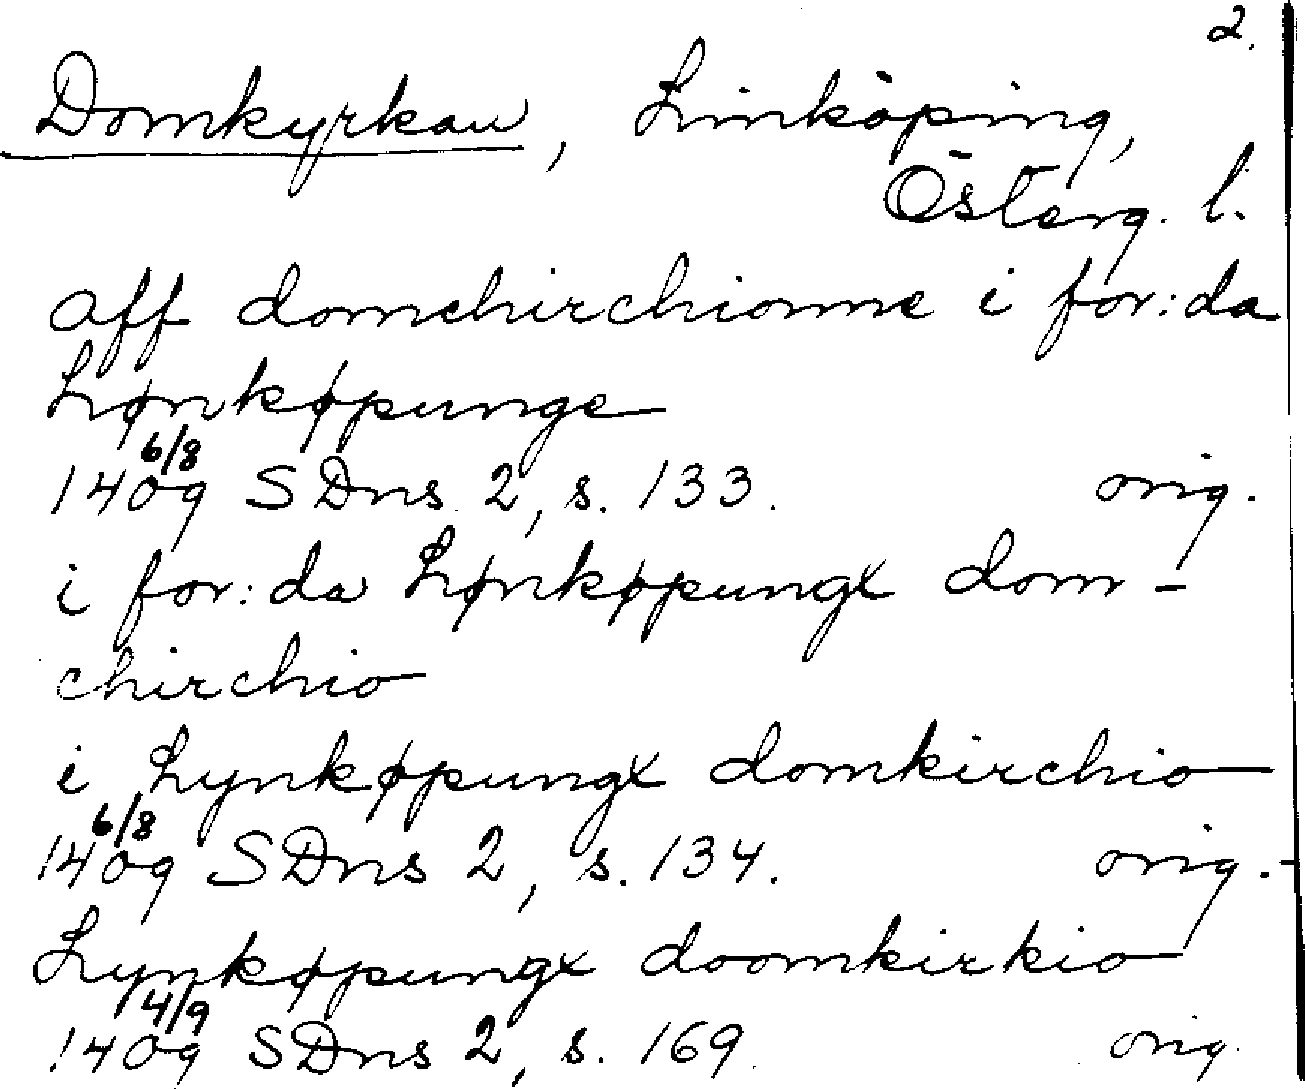 2.
Domkyrkan, Linköping,
Österg. l.
aff domchirchionne i for:da
Lønkøpunge
6/8
1409 SDns 2, s. 133. orig.
i for:da Lønkøpungx dom-
chirchio
i Lynkøpungx domkirchio
6/8
1409 SDns 2, s. 134. orig.
Lynkøpungx doomkirkio
4/9
1409 SDns 2, s. 169 orig.